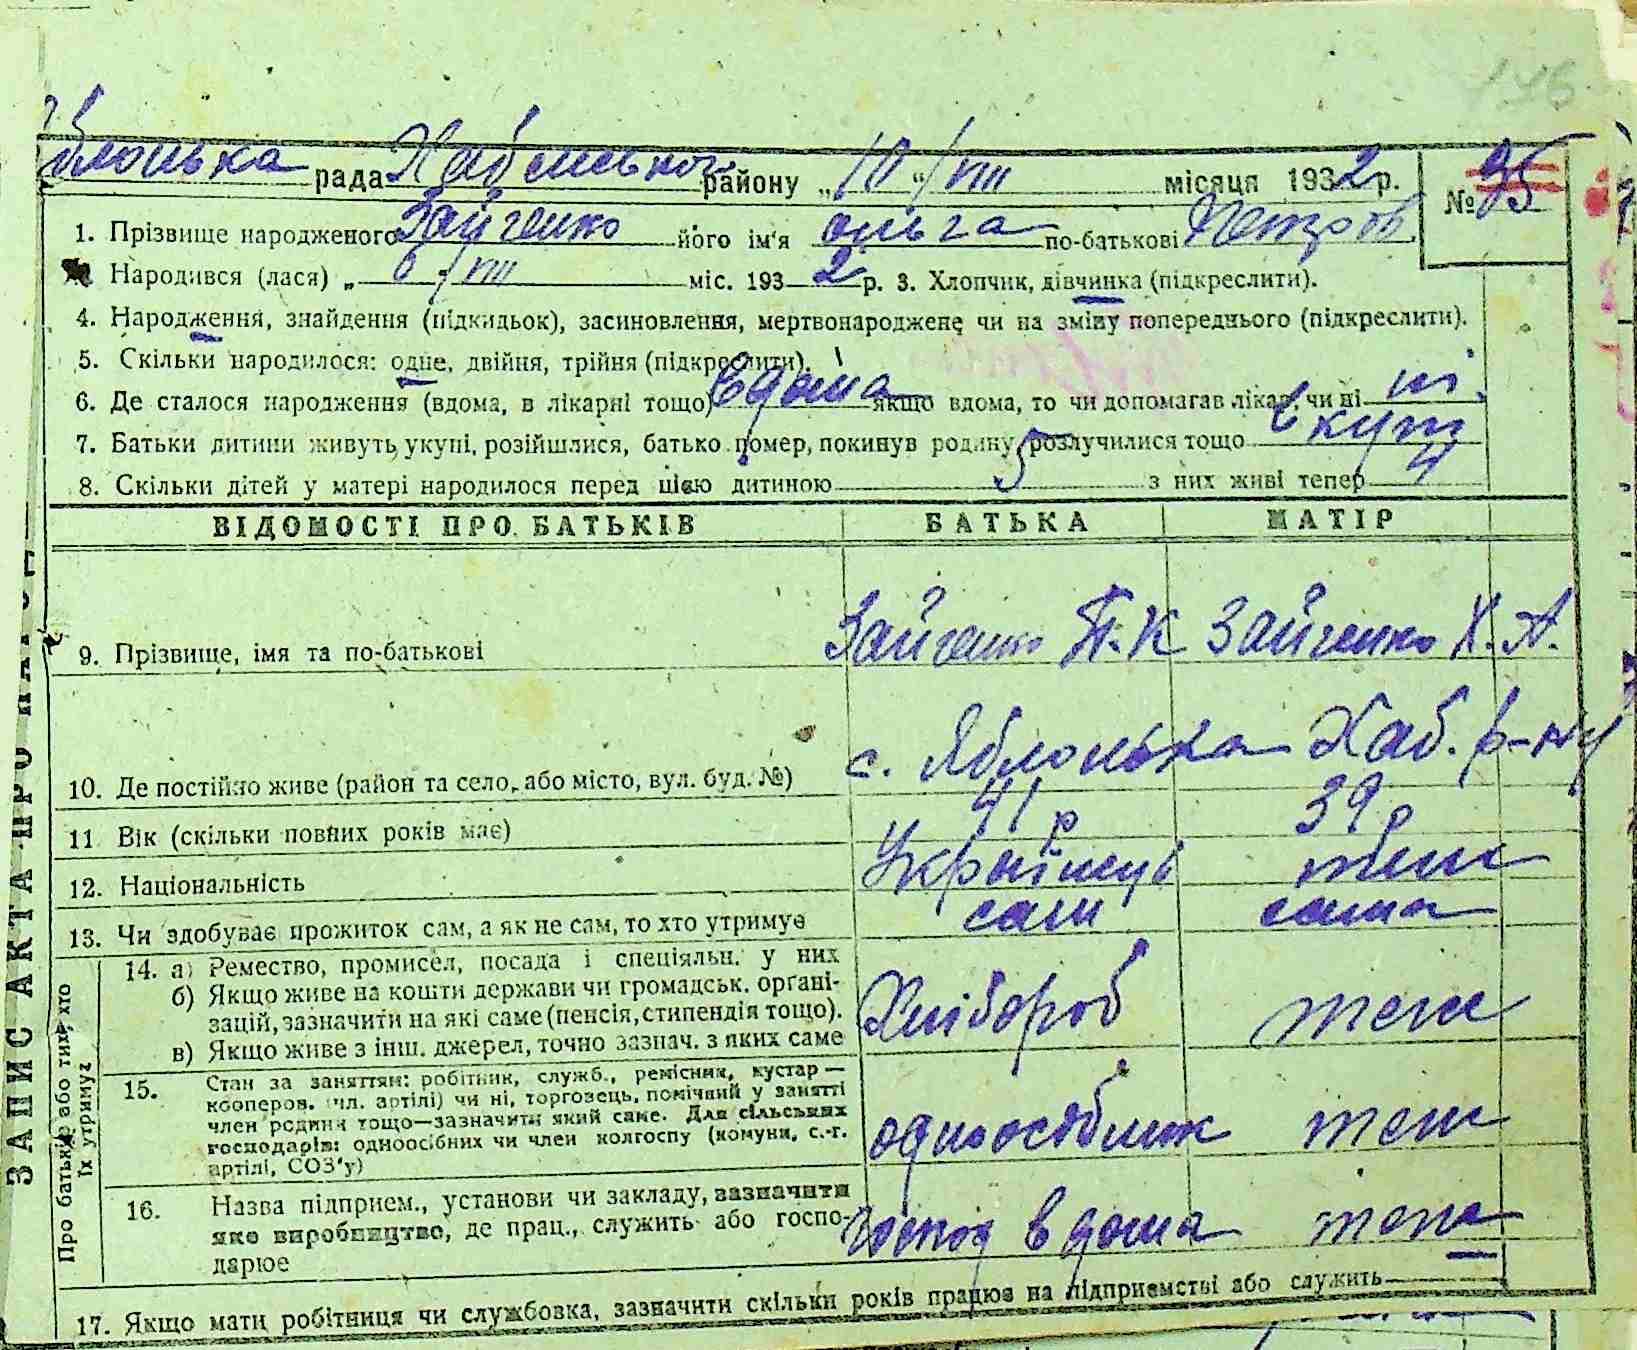 176
Яблонька рада Хабенського району „10“/VIII місяця 1932 р. № 95
1. Прізвище народженого Зайченко його ім'я Ольга по-батькові Петров
Народився (лася) „6/VIII міс. 1932 р. 3. Хлопчик, дівчинка (підкреслити).
4. Народження, знайдення (підкидьок), засиновлення, мертвонароджене чи на зміну попереднього (підкреслити).
5. Скільки народилося: одне, двійня, трійня (підкреслити).
6. Де сталося народження (вдома, в лікарні тощо) вдома якщо вдома, то чи допомагав лікар, чи ні ні.
7. Батьки дитини живуть укупі, розійшлися, батько помер, покинув родину, розлучилися тощо вкупі
8. Скільки дітей у матері народилося перед цією дитиною 5 з них живі тепер 4
ВІДОМОСТІ ПРО БАТЬКІВ БАТЬКА МАТІР
9. Прізвище, імя та по-батькові Зайченко П. К Зайченко Х. А.
10. Де постійно живе (район та село, або місто, вул. буд. №) с. Яблонька Хаб. р-ну
11 Вік (скільки повних років має) 41 р 39 р
12. Національність Українець теж
13. Чи здобуває прожиток сам, а як не сам, то хто утримує сам сама
14. а) Ремество, промисел, посада і спеціяльн. у них
б) Якщо живе на кошти держави чи громадськ. орґані-
зацій, зазначити на які саме (пенсія, стипендія тощо). Хлібороб теж
в) Якщо живе з інш. джерел, точно зазнач. з яких саме
15. Стан за заняттям: робітник, служб., ремісник, кустар —
кооперов. (чл. артілі) чи ні, торговець, помічний у занятті
член родини тощо—зазначити який саме. Для сільських
господарів: одноосібних чи член колгоспу (комуни, с.-г. одноосібник теж
артілі, СОЗ'у)
16. Назва підприєм., установи чи закладу, зазначити
яке виробництво, де прац., служить або госпо-
дарює господ вдома теж
17. Якщо мати робітниця чи службовка, зазначити скільки років працює на підприємстві або служить
Про батьків або тих, хто
їх утримує
ЗАПИС АКТА ПРО